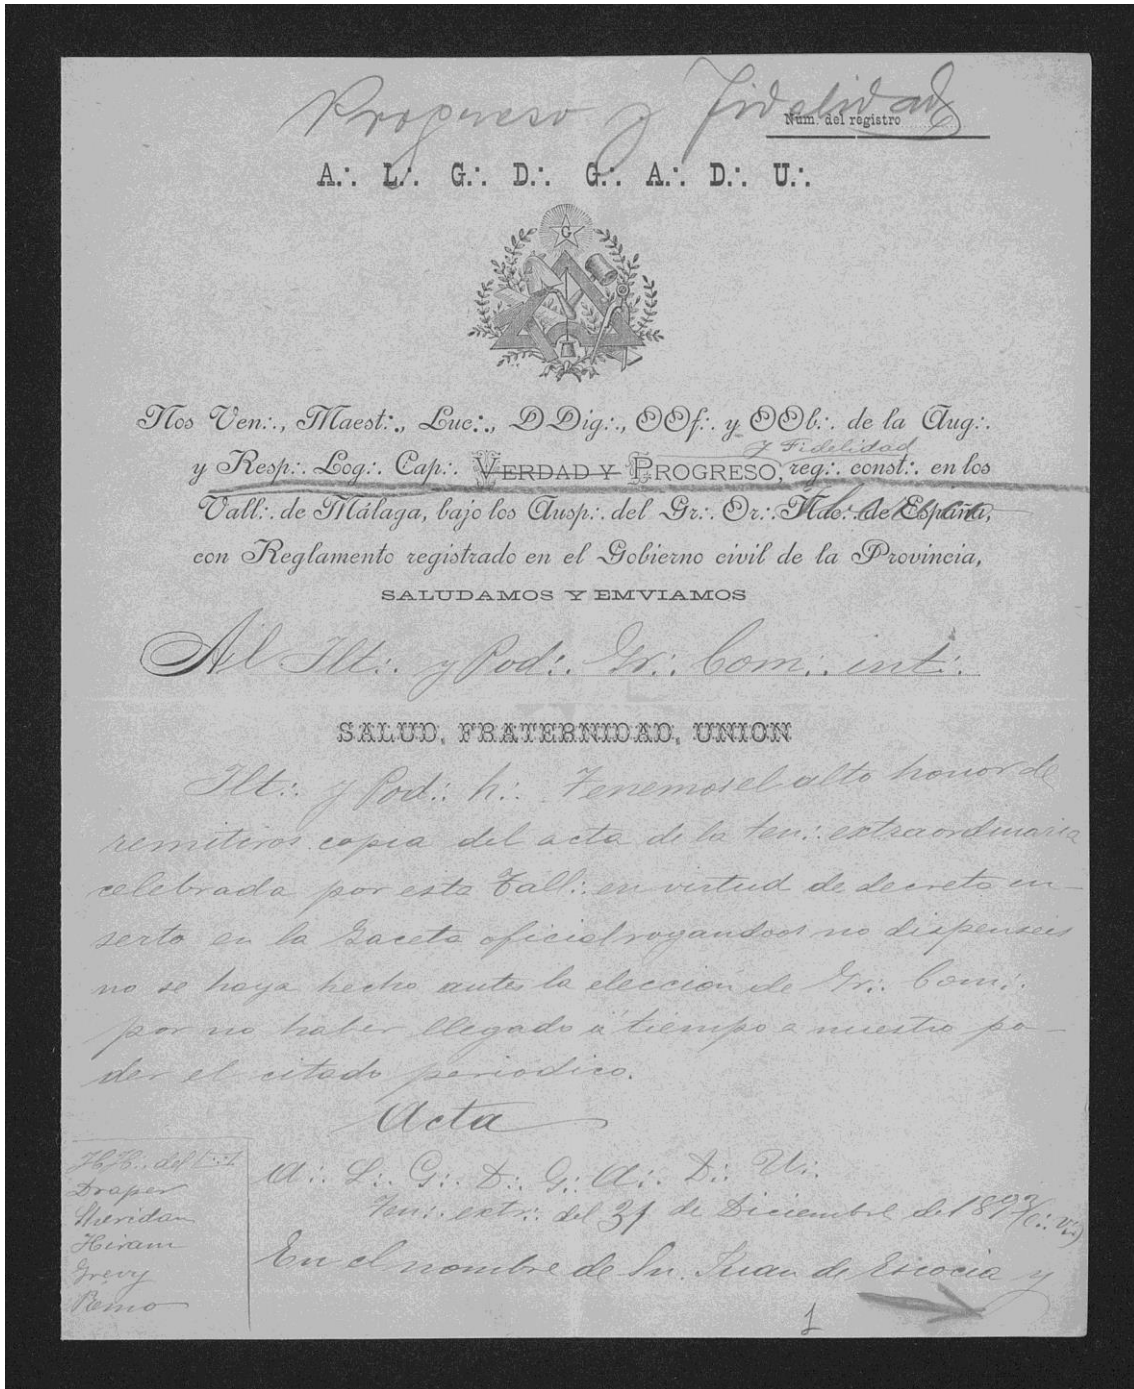 Progreso y Fidelidad
Núm. del registro
A.·. L.·. G.·. D.·. G.·. A.·. D.·. U.·.
G
Nos Ven.·., Maest.·., Luc.·., DDig.·., OOf.·. y OOb.·. de la Aug.·.
y Fidelidad
y Resp.·. Log.·. Cap.·. VERDAD Y PROGRESO, reg.·. const.·. en los
Vall.·. de Málaga, bajo los Ausp.·. del Gr.·. Or.·. Nac.·. de España,
con Reglamento registrado en el Gobierno civil de la Provincia,
SALUDAMOS Y EMVIAMOS
Al Ilt.·. y Pod.·. Gr.·. Com.·. int.·.
SALUD, FRATERNIDAD, UNION
Ilt.·. y Pod.·. h.·. Tenemos el alto honor de
remitiros copia del acta de la ten.·. extraordinaria
celebrada por este Tall.·. en virtud de decreto in-
serto en la Gaceta oficial rogandoos no dispenseis
no se haya hecho antes la elección de Gr.·. Com.·.
por no haber llegado á tiempo a nuestro po-
der el citado periodico.
Acta
HH.·. del
Draper
Sheridan
Hiram
Grevy
Remo
A.·. L.·. G.·. D.·. G.·. A.·. D.·. U.·.
Ten.·. extr.·. del 31 de Diciembre de
En el nombre de Sn. Juan de Escocia y
1